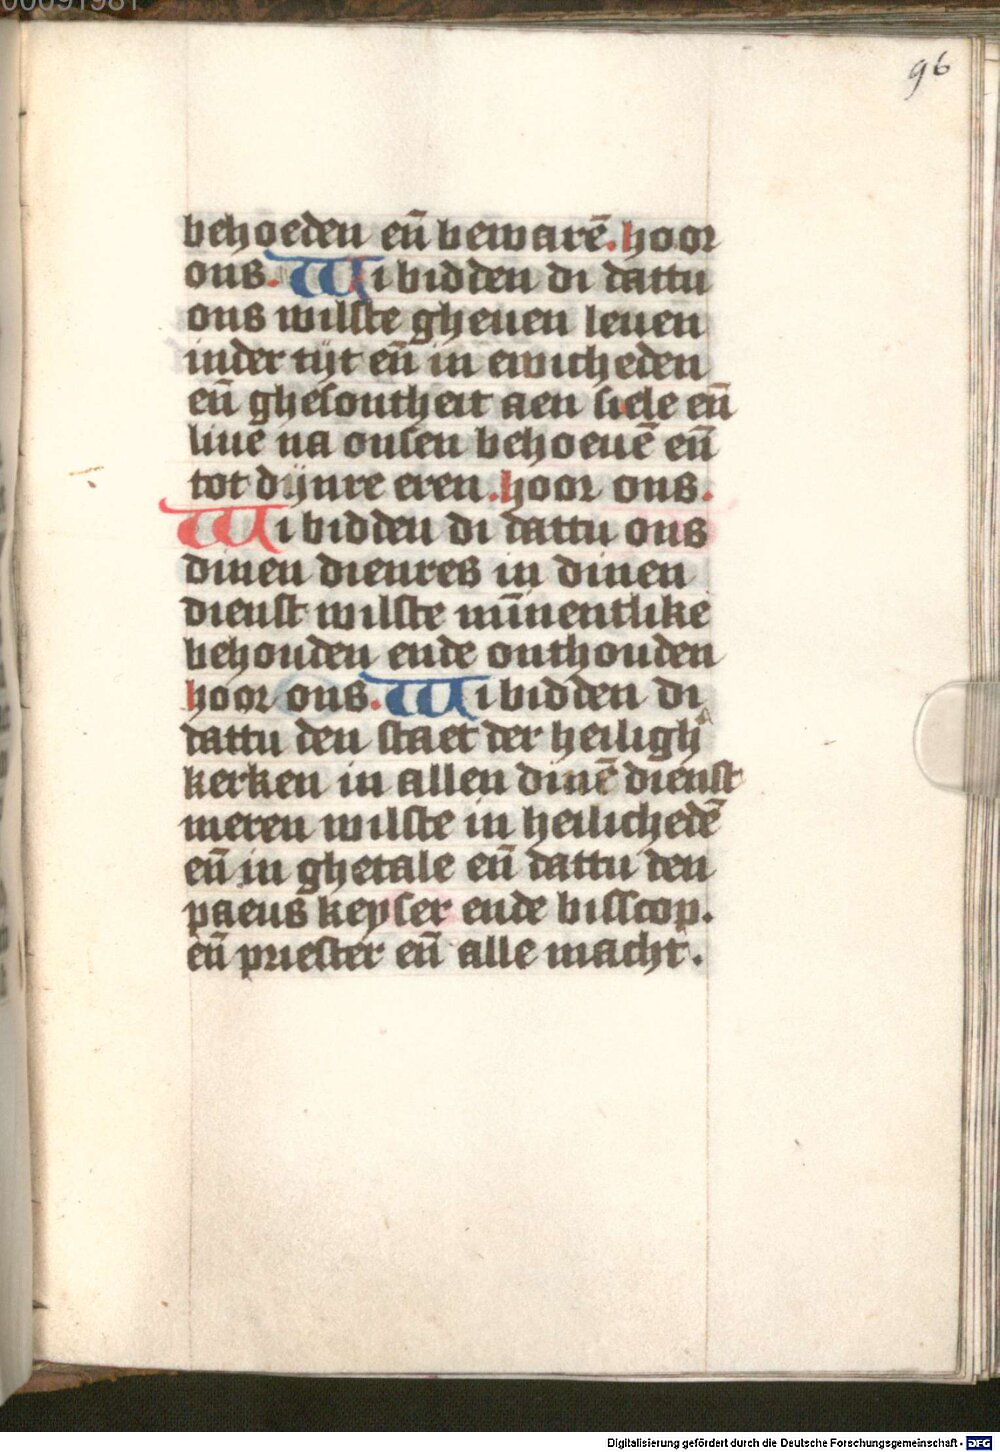 00091981
96
behoeden en̄ bewarē. hoor
ons. Wi bidden di dattu
ons wilste gheuen leuen
inder tijt en̄ in ewicheden
en̄ ghesontheit aen siele en̄
liue na onsen behoeuē en̄
tot dijnre eren. hoor ons.
Wi bidden di dattu ons
dinen dienres in dinen
dienst wilste mīnentlike
behouden ende onthouden
hoor ons. Wi bidden di
dattu den staet der heiligh
kerken in allen dinē dienst
meren wilste in heilichedē
en̄ in ghetale en̄ dattu den
paeus keyser ende bisscop.
en̄ priester en̄ alle macht.
Digitalisierung gefördert durch die Deutsche Forschungsgemeinschaft - DFG